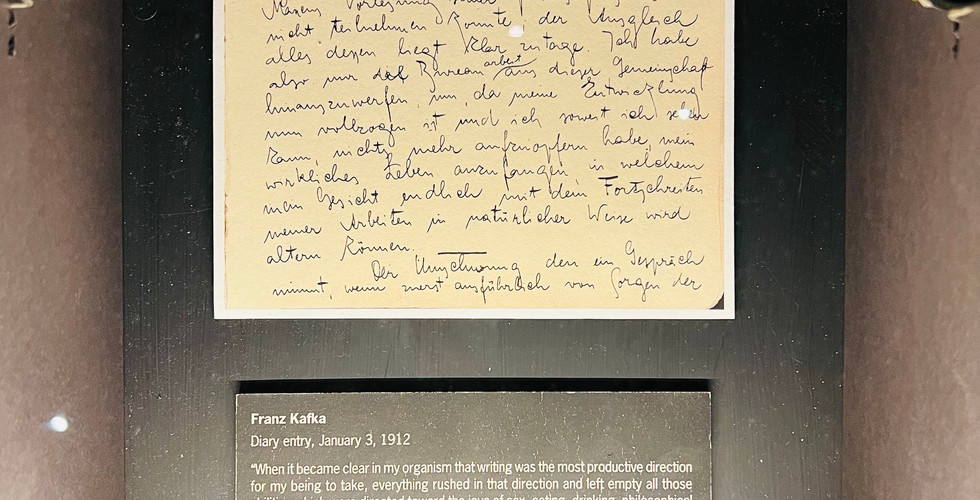 nicht teilnehmen konnte der Ausgleich
alles dessen liegt klar zutage. Ich habe
also nur die Bureauarbeit aus dieser Gemeinschaft
hinauszuwerfen, um, da meine Entwicklung
nun vollzogen ist und ich soweit ich sehen
kann, nichts mehr aufzuopfern habe, mein
wirkliches Leben anzufangen in welchem
mein Gesicht endlich mit dem Fortschreiten
meiner Arbeiten in natürlicher Weise wird
altern können.
Der Umschwung den ein Gespräch
nimmt, wenn zuerst ausführlich von Sorgen der
Franz Kafka
Diary entry, January 3, 1912
"When it became clear in my organism that writing was the most productive direction
for my being to take, everything rushed in that direction and left empty all those